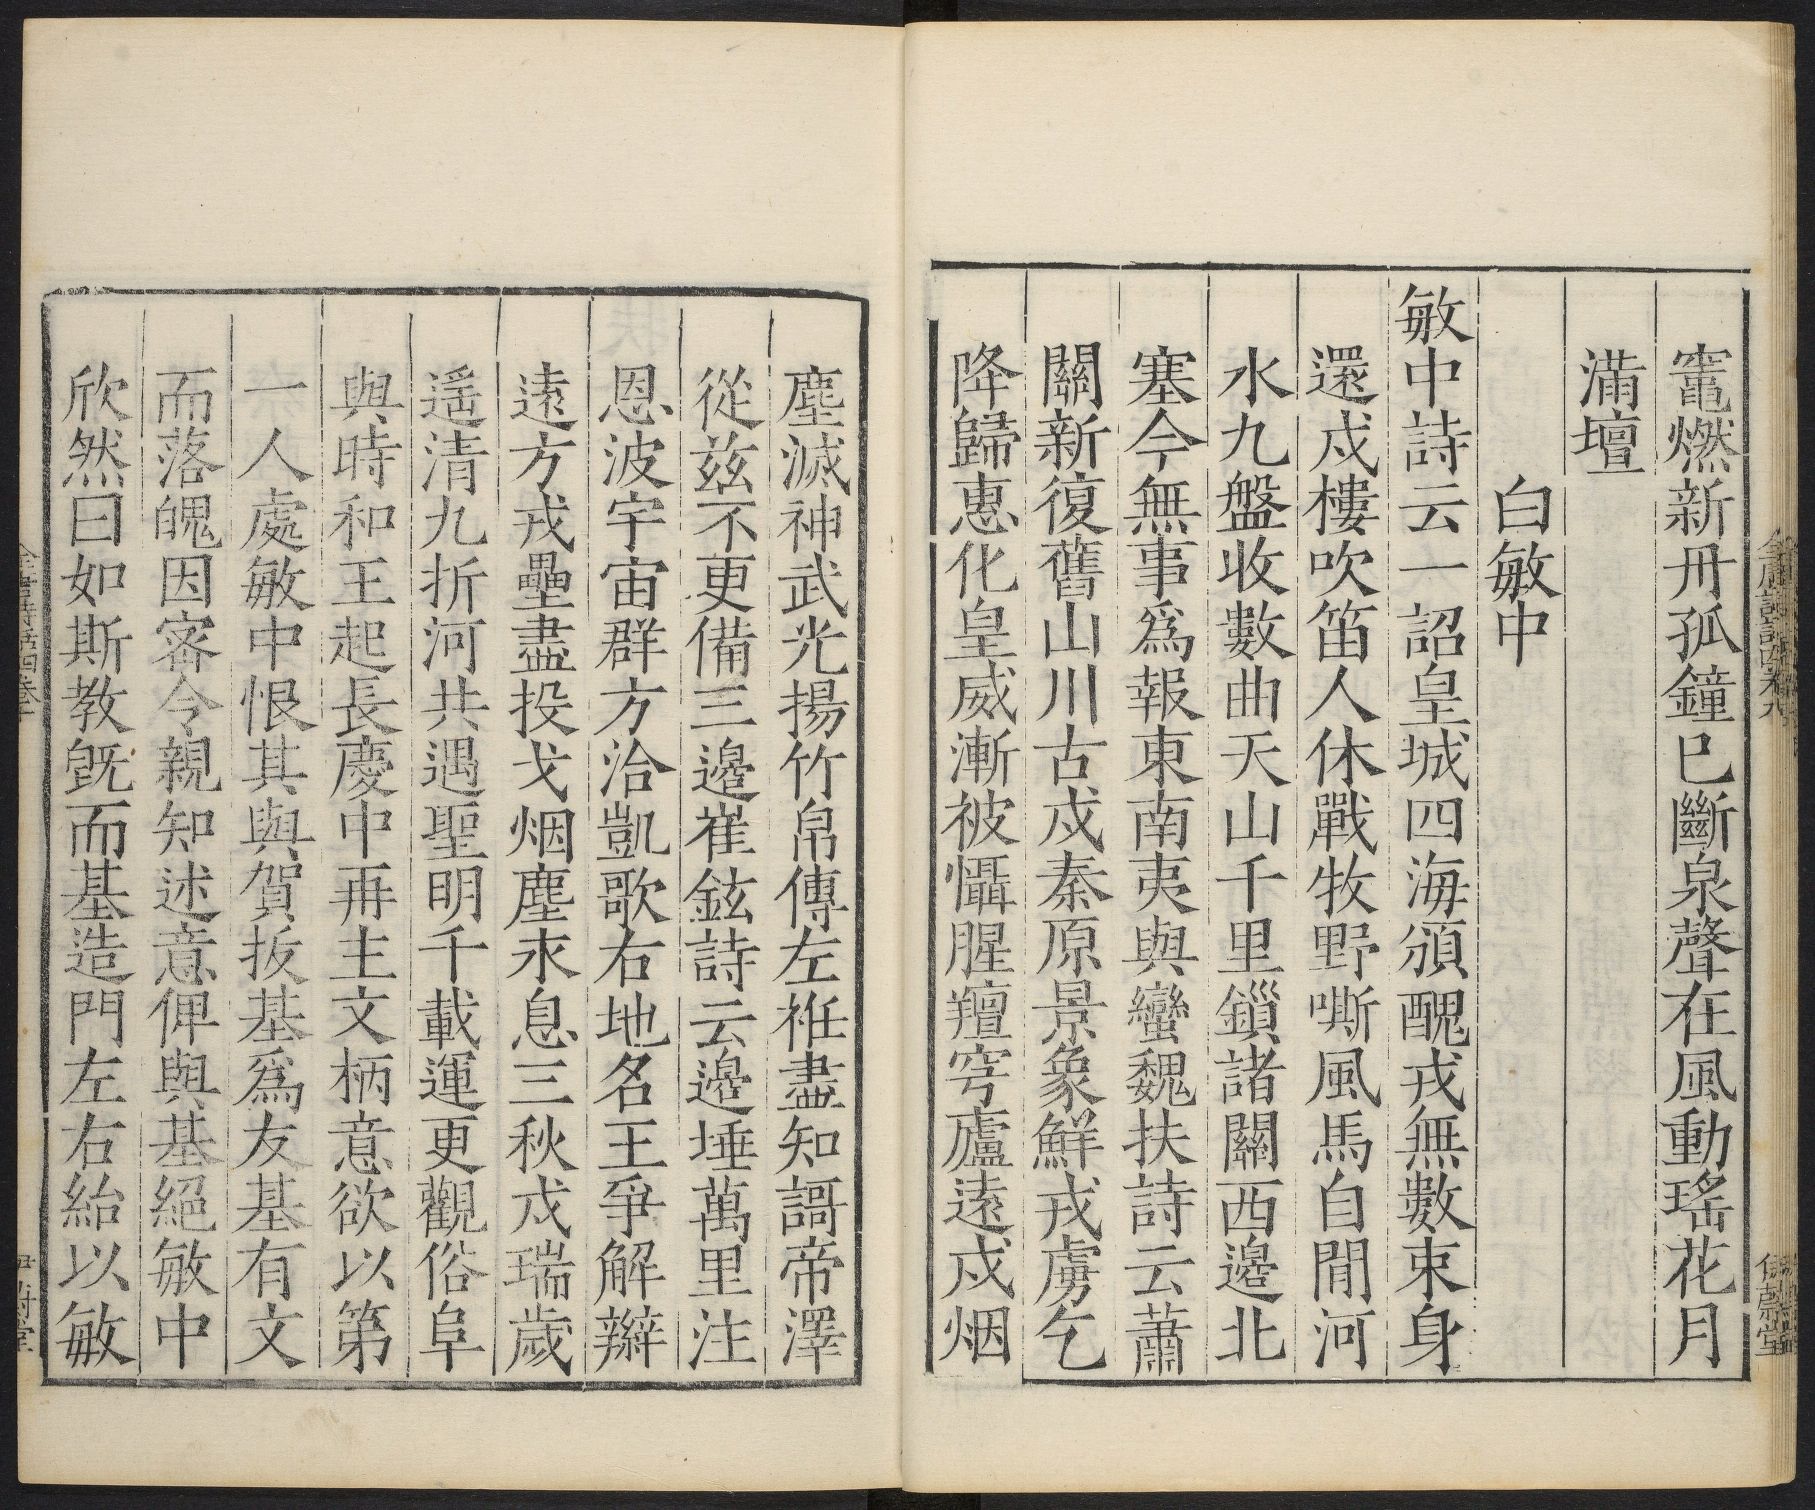 竈燃新丹孤鐘已斷泉聲在風動瑤花月
滿壇
白敏中
敏中詩云一詔皇城四海頒醜戎無數束身
還戍樓吹笛人休戰牧野嘶風馬自閒河
水九盤收數曲天山千里鎖諸關西邊北
塞今無事爲報東南夷與蠻魏扶詩云蕭
關新復舊山川古戍秦原景象鮮戎虜乞
降歸惠化皇威漸被懾腥羶穹廬遠戍烟
塵滅神武光揚竹帛傳左袵盡知謌帝澤
從兹不更備三邊崔鉉詩云邊埵萬里注
恩波宇宙群方洽凱歌右地名王爭解辮
遠方戎壘盡投戈烟塵永息三秋戍瑞歲
遥清九折河共遇聖明千載運更觀俗阜
與時和王起長慶中再主文柄意欲以第
一人處敏中恨其與賀拔基爲友基有文
而落魄因密令親知述意俾與基絕敏中
欣然曰如斯教旣而基造門左右紿以敏